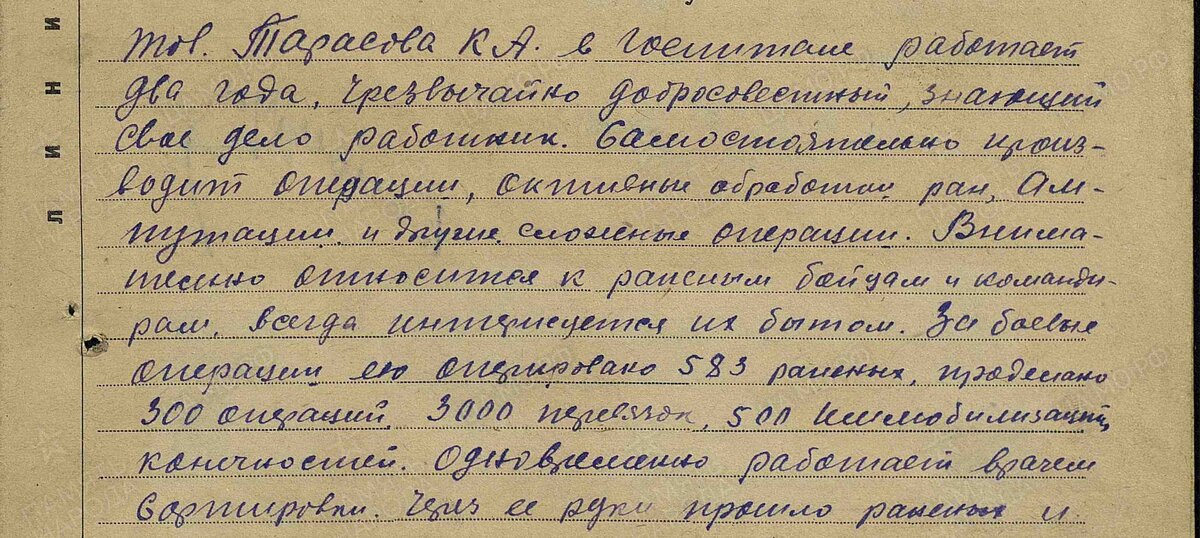 тов. Тарасова К А. в госпитале работает
два года. Чрезвычайно добросовестный, знающий
свое дело работник. Самостоятельно произ-
водит операции, активные обработки ран, Ам-
путации и другие сложные операции. Внима-
тельно относится к раненым бойцам и команди-
рам, всегда интересуется их бытом. За боевые
операции ею оперировано 583 раненых, проделано
300 операций, 3000 перевязок, 500 Иммобилизаций
конечностей. Одновременно работает врачем
Сортировки. Через ее руки прошло раненых и
И
Н
И
Л